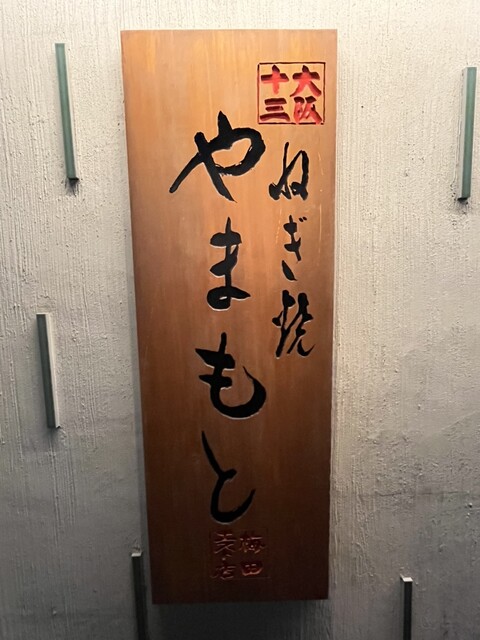 大阪
十三
ねぎ焼
やまもと
梅田
エスト店